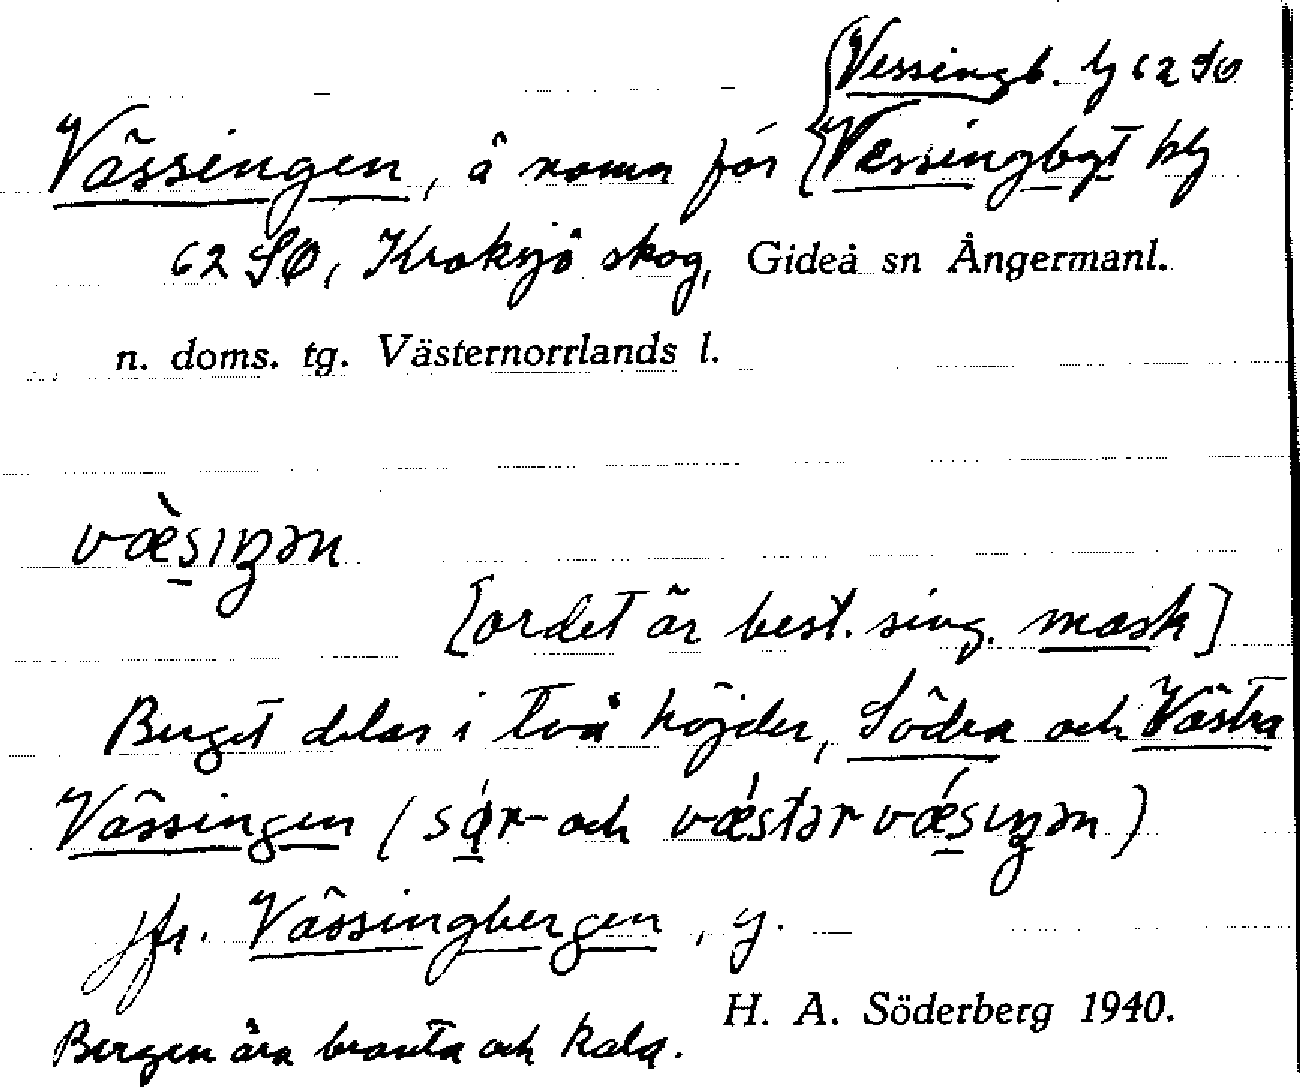 Vessingb. hg 62 SO
Vässingen, å namn för Vessingbgt hg
62 SO, Kraksjö skog, Gideå sn Ångermanl.
n. doms. tg. Västernorrlands l.
væ̀sıŋən
[ordet är best. sing. mask]
Berget delas i två höjder, Södra och Västra
Vässingen (sǿr- och vǽstər vǽsıŋən)
jfr. Vässingbergen,
H. A. Söderberg 1940.
Bergen äro branta och kala.